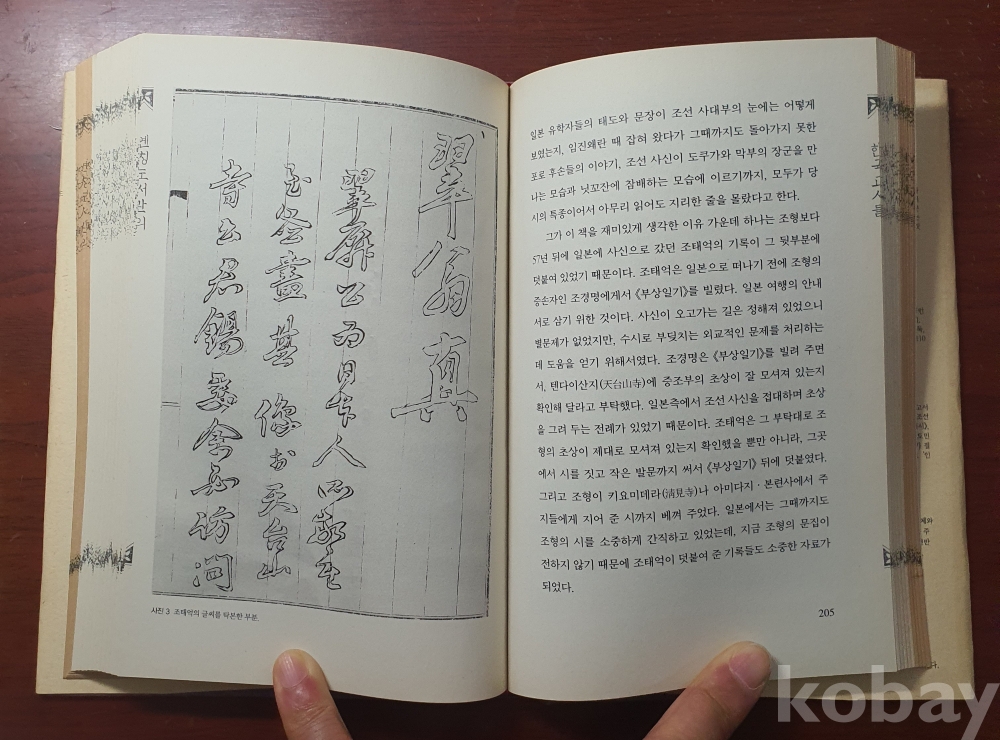 옌칭도서관의
翠屛公爲日本人所
天台山
訪問
사진 3 조태억의 글씨를 탁본한 부분.
일본 유학자들의 태도와 문장이 조선 사대부의 눈에는 어떻게
보였는지, 임진왜란 때 잡혀 왔다가 그때까지도 돌아가지 못한
포로 후손들의 이야기, 조선 사신이 도쿠가와 막부의 장군을 만
나는 모습과 닛꼬잔에 참배하는 모습에 이르기까지, 모두가 당
시의 특종이어서 아무리 읽어도 지리한 줄을 몰랐다고 한다.
그가 이 책을 재미있게 생각한 이유 가운데 하나는 조형보다
57년 뒤에 일본에 사신으로 갔던 조태억의 기록이 그 뒷부분에
덧붙여 있었기 때문이다. 조태억은 일본으로 떠나기 전에 조형의
증손자인 조경명에게서 《부상일기》를 빌렸다. 일본 여행의 안내
서로 삼기 위한 것이다. 사신이 오고가는 길은 정해져 있었으니
별문제가 없었지만, 수시로 부딪치는 외교적인 문제를 처리하는
데 도움을 얻기 위해서였다. 조경명은 《부상일기》를 빌려 주면
서, 텐다이산지(天台山寺)에 증조부의 초상이 잘 모셔져 있는지
확인해 달라고 부탁했다. 일본측에서 조선 사신을 접대하며 초상
을 그려 두는 전례가 있었기 때문이다. 조태억은 그 부탁대로 조
형의 초상이 제대로 모셔져 있는지 확인했을 뿐만 아니라, 그곳
에서 시를 짓고 작은 발문까지 써서 《부상일기》 뒤에 덧붙였다.
그리고 조형이 키요미데라(淸見寺)나 아미다지·본련사에서 주
지들에게 지어 준 시까지 베껴 주었다. 일본에서는 그때까지도
조형의 시를 소중하게 간직하고 있었는데, 지금 조형의 문집이
전하지 않기 때문에 조태억이 덧붙여 준 기록들도 소중한 자료가
되었다.
205
kobay